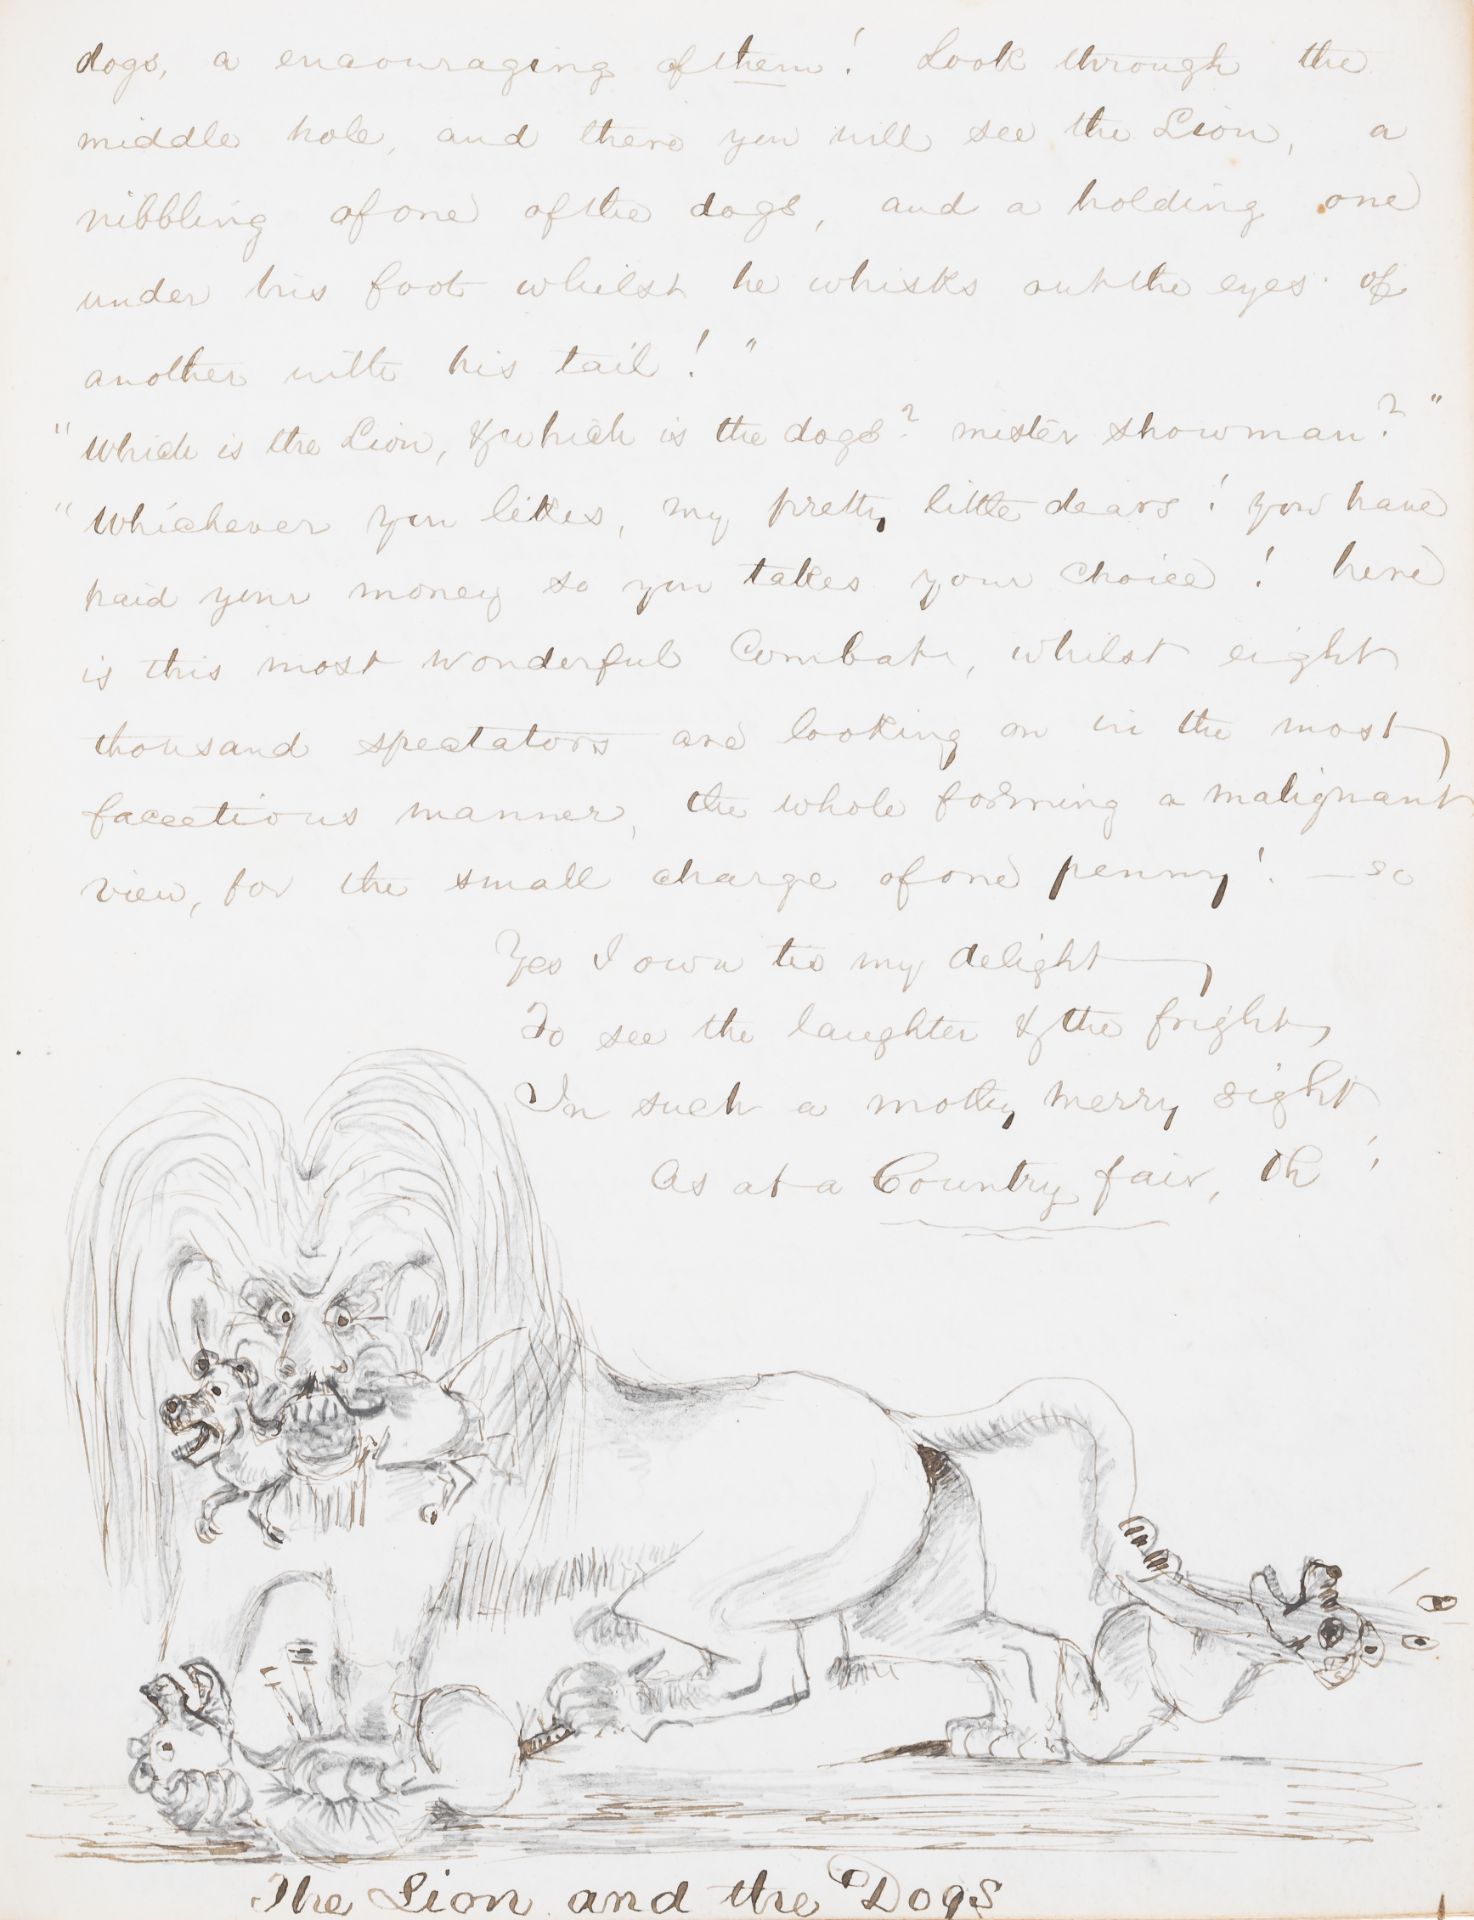 dogs, a encouraging of them! Look through the
middle hole, and there you will see the Lion, a
nibbling of one of the dogs, and a holding one
under his foot whilst he whisks out the eyes of
another with his tail!"
"Which is the Lion, & which is the dogs? mister showman?"
"Whichever you likes, my pretty little dears! you have
paid your money so you takes your choice! here
is this most wonderful Combat, whilst eight
thousand spectators are looking on in the most
faceetious manner, the whole forming a malignant
view, for the small charge of one penny! — so
Yes I own tis my delight
To see the laughter & the fright
In such a motley merry sight
As at a Country fair, Oh!
The Lion and the Dogs